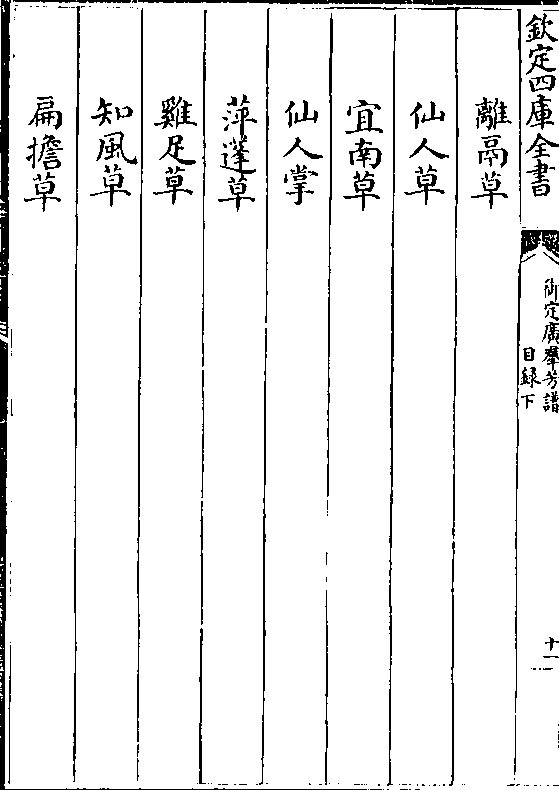 欽定四庫全書
御定廣羣芳譜
目録下
十一
離鬲草
仙人草
宜南草
仙人掌
萍蓬草
雞足草
知風草
扁擔草